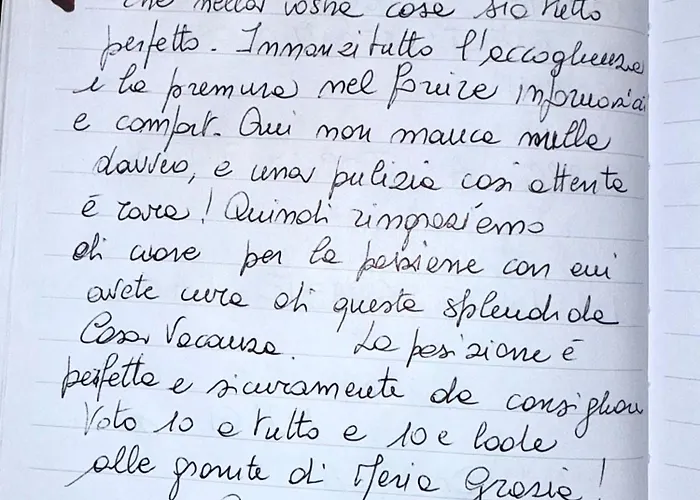 che nella vostra casa sia tutto
perfetto. Innanzitutto l'accoglienza
e la premura nel fornire informazioni
e comfort. Qui non manca nulla
davvero, e una pulizia così attenta
è rara! Quindi ringraziamo
di cuore per la passione con cui
avete cura di questa splendida
Casa Vacanza. La posizione è
perfetta e sicuramente da consigliare
Voto 10 a tutto e 10 e lode
alle granite di Maria Grazia!